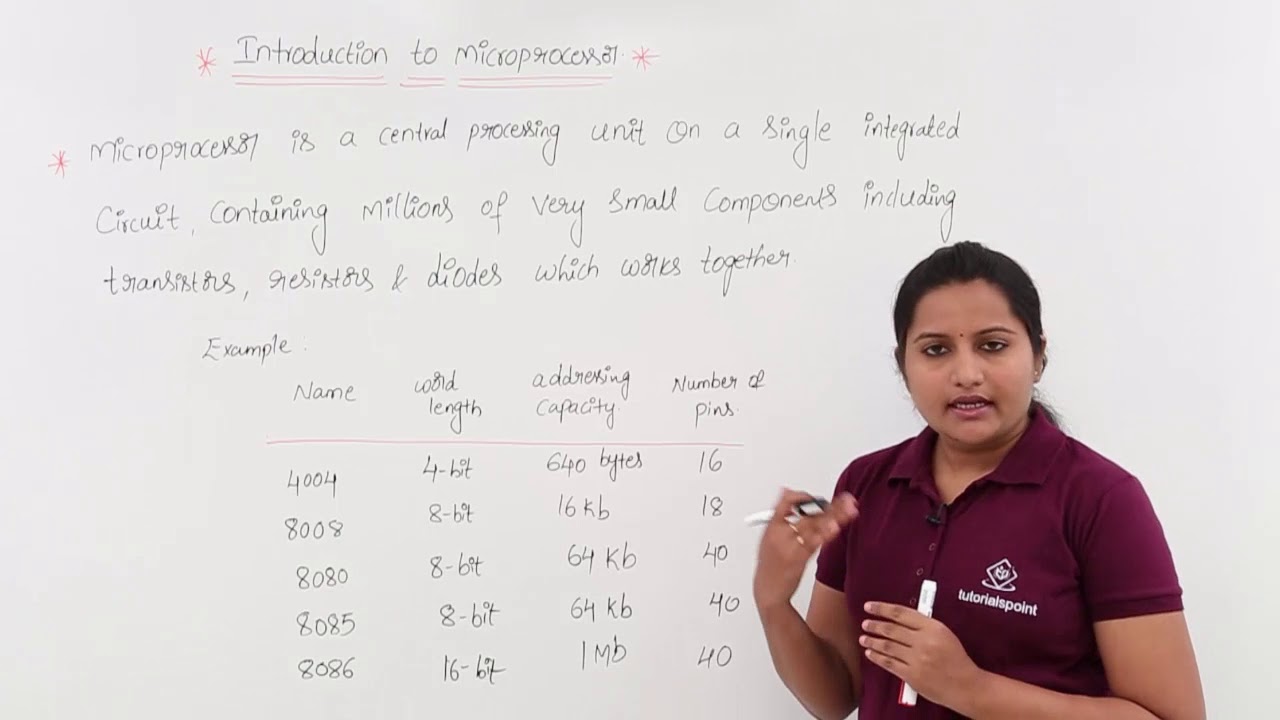 * Introduction to Microprocessor *
* Microprocessor is a central processing unit on a single integrated
Circuit, containing Millions of very small components including
transistors, resistors & diodes which works together.
Example :
Name word length addressing capacity. Number of pins.
4004 4-bit 640 bytes 16
8008 8-bit 16 kb 18
8080 8-bit 64 kb 40
8085 8-bit 64 kb 40
8086 16-bit 1 Mb 40
tutorialspoint